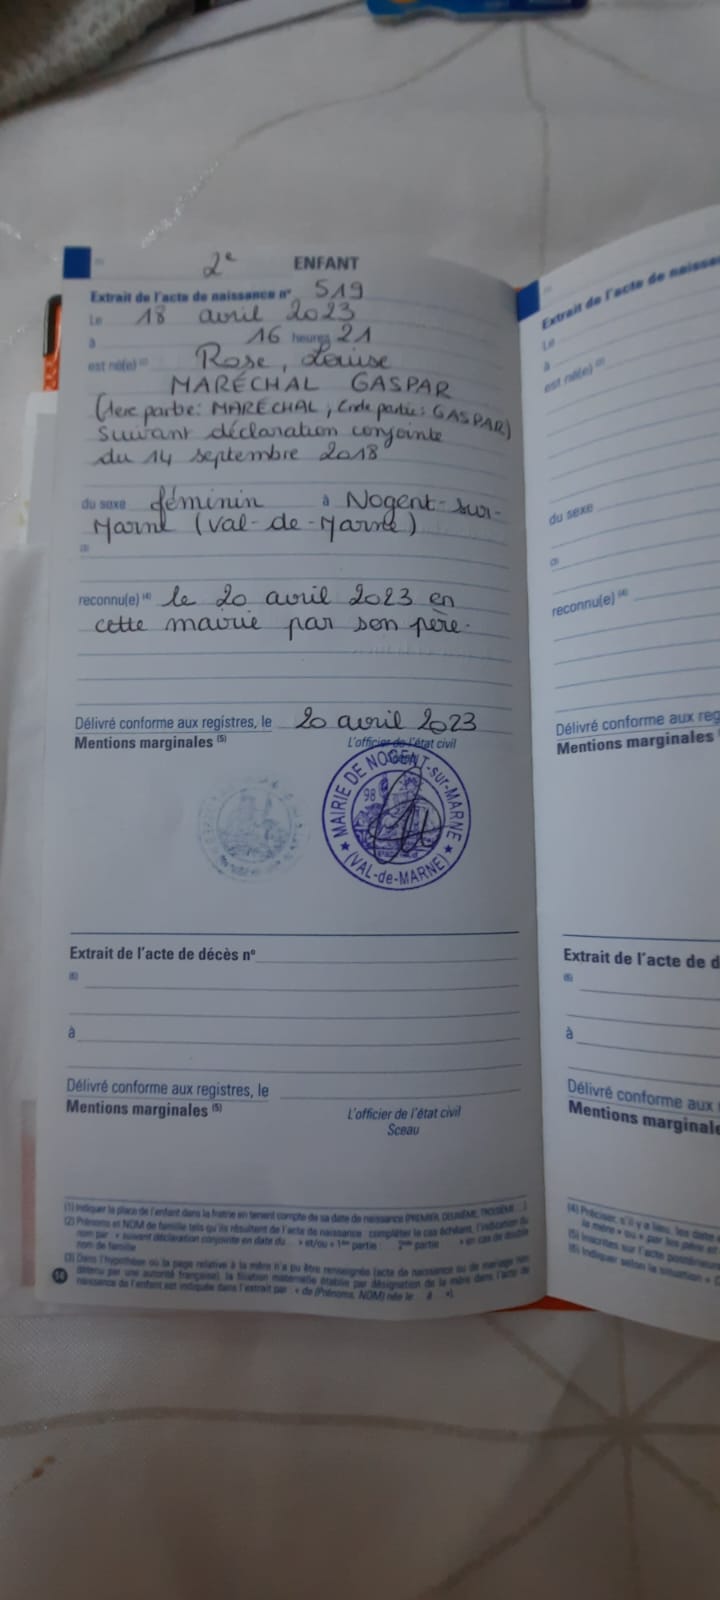 2e ENFANT
Extrait de l'acte de naissance n° 519
Le 18 avril 2023
à 16 heures 21
est né(e) (2) Rose, Louise
MARÉCHAL GASPAR
(1ere partie: MARÉCHAL ; 2nde partie: GASPAR)
suivant déclaration conjointe
du 14 septembre 2018
du sexe féminin à Nogent-sur-
Marne (Val-de-Marne)
(3)
reconnu(e) (4) le 20 avril 2023 en
cette mairie par son père.
Délivré conforme aux registres, le 20 avril 2023
Mentions marginales (5) L'officier de l'état civil
MAIRIE DE NOGENT-sur-MARNE
98
(VAL-de-MARNE)
Extrait de l'acte de décès n°
(6)
à
Délivré conforme aux registres, le
Mentions marginales (5) L'officier de l'état civil
Sceau
(1) Indiquer la place de l'enfant dans la fratrie en tenant compte de sa date de naissance (PREMIER, DEUXIÈME, TROISIÈME ...)
(2) Prénoms et NOM de famille tels qu'ils résultent de l'acte de naissance : compléter le cas échéant, l'indication du
nom par : « suivant déclaration conjointe en date du ... » et/ou « 1ère partie : ... 2ème partie : ... » en cas de double
nom de famille
(3) Dans l'hypothèse où la page relative à la mère n'a pu être renseignée (acte de naissance ou de mariage non
détenu par une autorité française), la filiation maternelle établie par désignation de la mère dans l'acte de
naissance de l'enfant est indiquée dans l'extrait par : « de (Prénoms, NOM) née le ... à ... ».
Extrait de l'acte de naissa
Le
à
est né(e) (2)
du sexe
(3)
reconnu(e) (4)
Délivré conforme aux reg
Mentions marginales
Extrait de l'acte de d
(6)
à
Délivré conforme aux
Mentions marginale
(4) Préciser, s'il y a lieu, les date
la mère » ou « par les père et
(5) Inscrites sur l'acte postérieure
(6) Indiquer selon la situation «